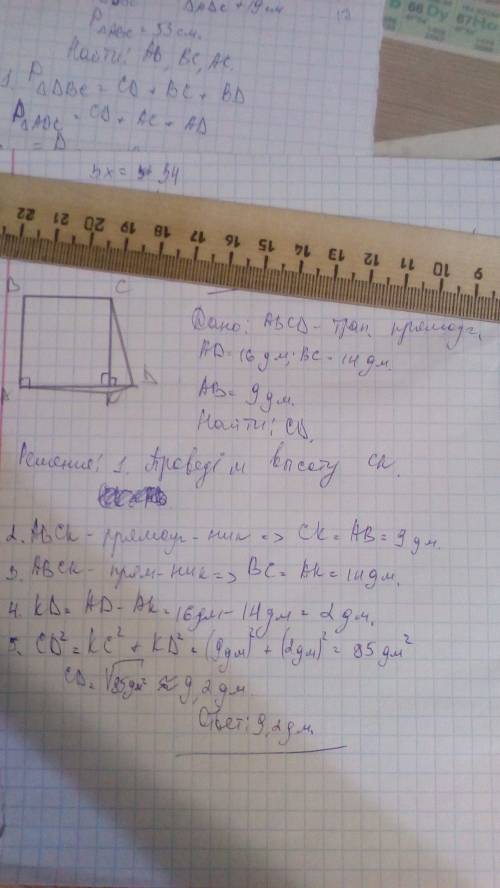 ΔADC + 19 см
P ΔABC = 53 см.
Найти: AB, BC, AC.
1. P ΔDBC = CD + BC + BD
P ΔADC = CD + AC + AD
= D
34
22 21 20 19 18 17 16 15 14 13 12 11 10 9
66 Dy 67 Ho
B C
A K D
Дано: ABCD - трап. прямоуг.
AD = 16 дм; BC = 14 дм.
AB = 9 дм.
Найти: CD.
Решение: 1. Проведём высоту CK.
2. ABCK - прямоуг-ник => CK = AB = 9 дм.
3. ABCK - прям-ник => BC = AK = 14 дм.
4. KD = AD - AK = 16 дм - 14 дм = 2 дм.
5. CD² = KC² + KD² = (9 дм)² + (2 дм)² = 85 дм²
CD = √85 дм² ≈ 9,2 дм.
Ответ: 9,2 дм.